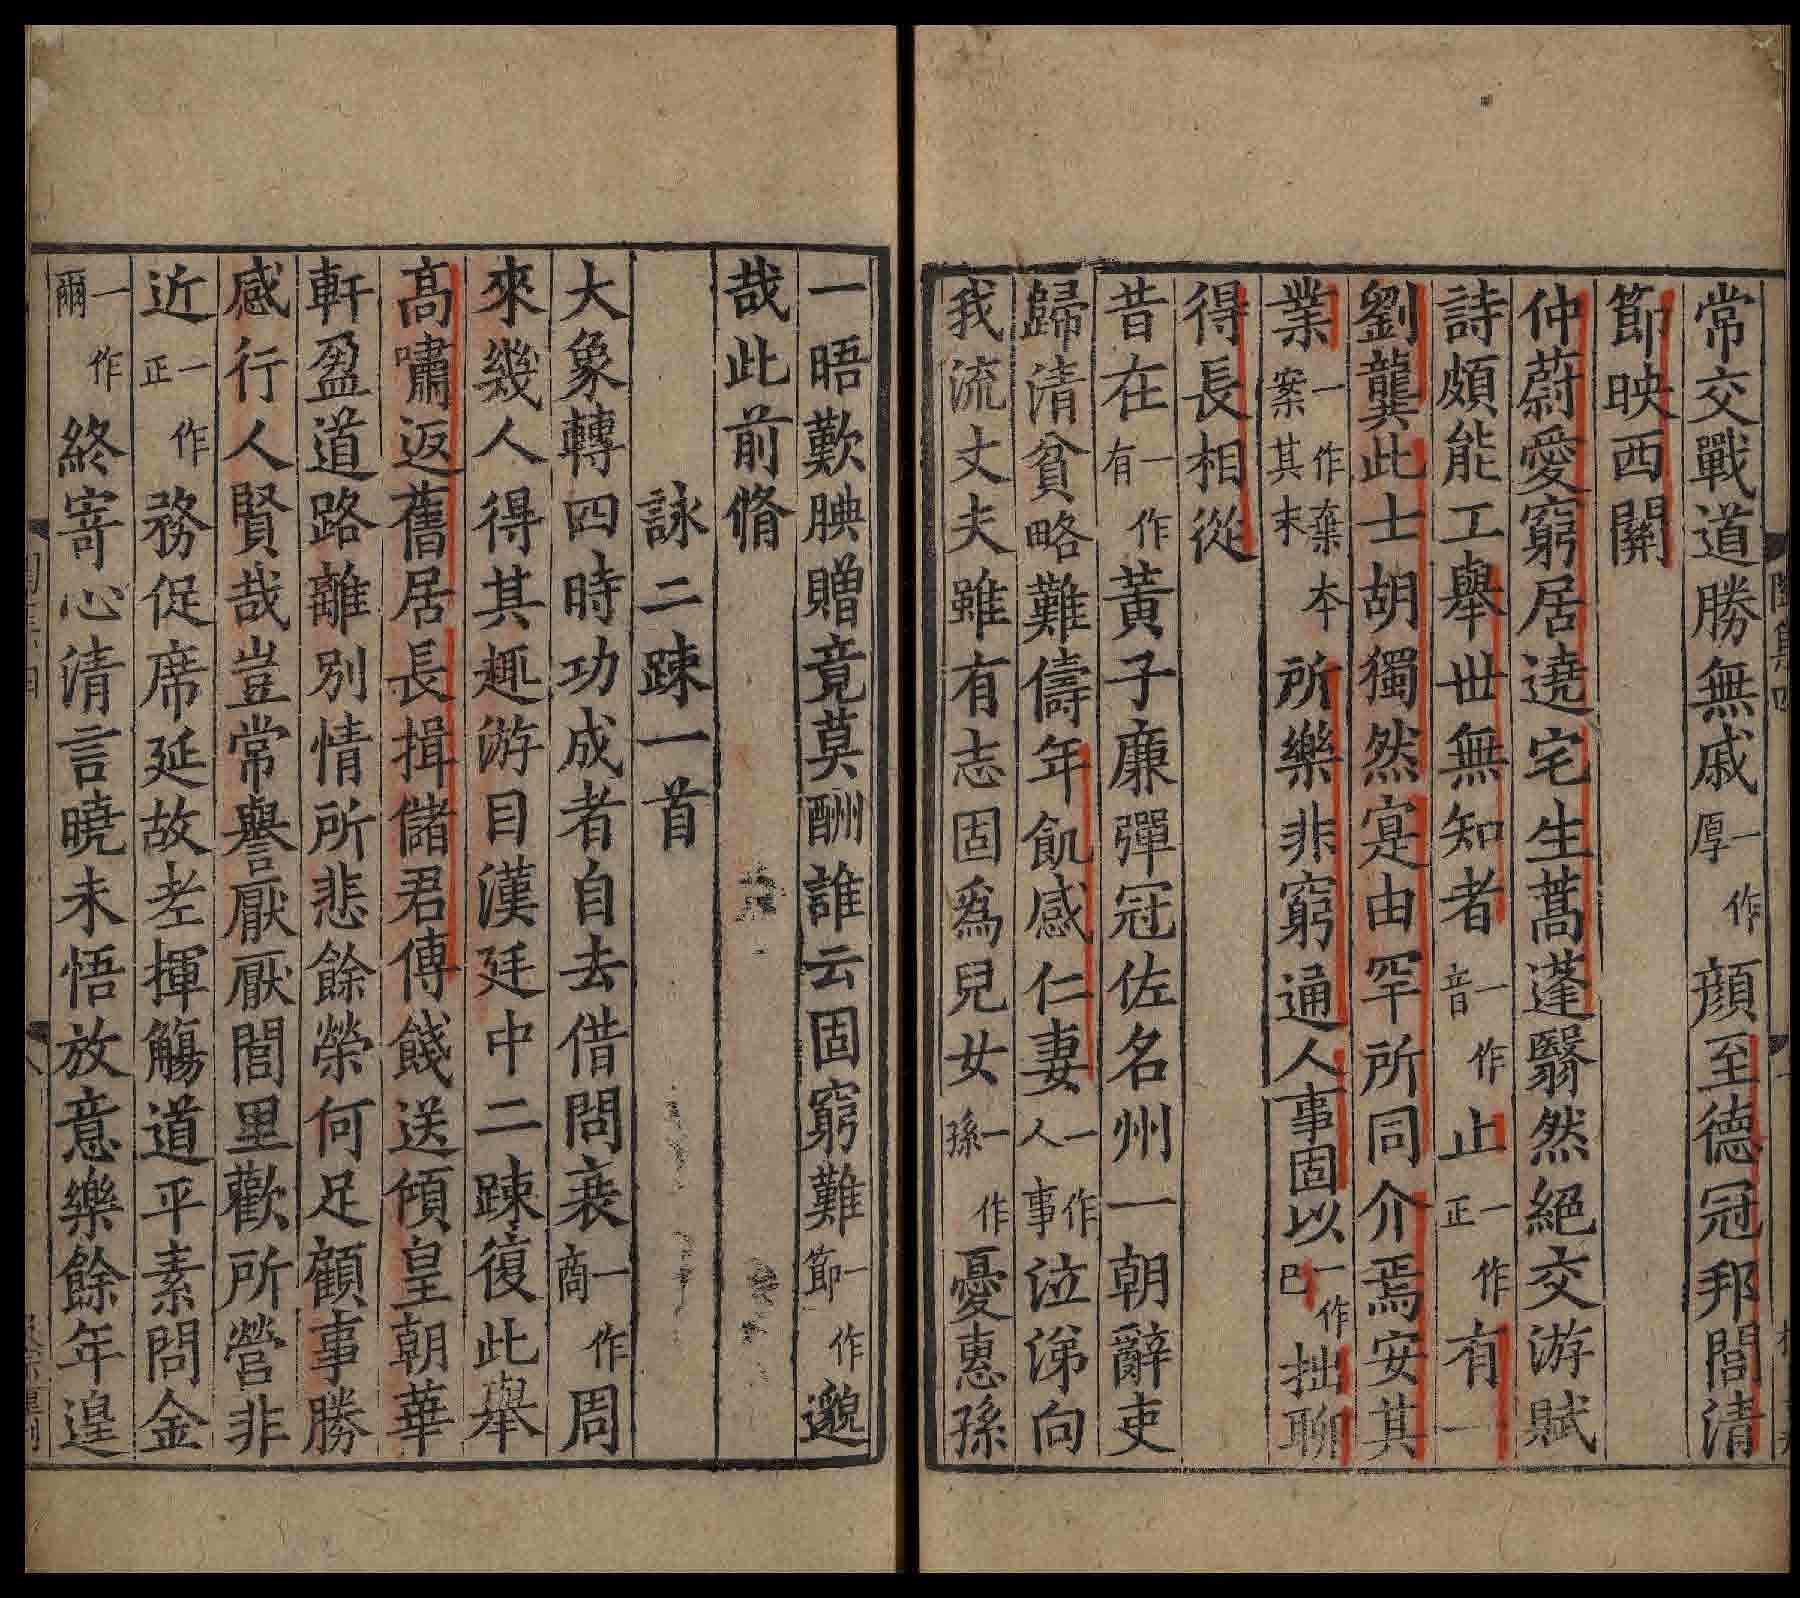 常交戰道勝無戚一作厚顔至德冠邦閭清
節映西關
仲蔚愛窮居遶宅生蒿蓬翳然絕交游賦
詩頗能工舉世無知者一作音止一作正有一
劉龔此士胡獨然寔由罕所同介焉安其
業一作棄本案其末所樂非窮通人事固以一作已拙聊
得長相從
昔在一作有黃子廉彈冠佐名州一朝辭吏
歸清貧略難儔年飢感仁妻一作事人泣涕向
我流丈夫雖有志固爲兒女一作孫憂惠孫
一晤歎腆贈竟莫酬誰云固窮難一作節邈
哉此前脩
詠二踈一首
大象轉四時功成者自去借問衰一作商周
來幾人得其趣游目漢廷中二踈復此舉
高嘯返舊居長揖儲君傳餞送傾皇朝華
軒盈道路離別情所悲餘榮何足顧事勝
感行人賢哉豈常譽厭厭閭里歡所營非
近一作正務促席延故老揮觴道平素問金
一作爾終寄心清言曉未悟放意樂餘年遑